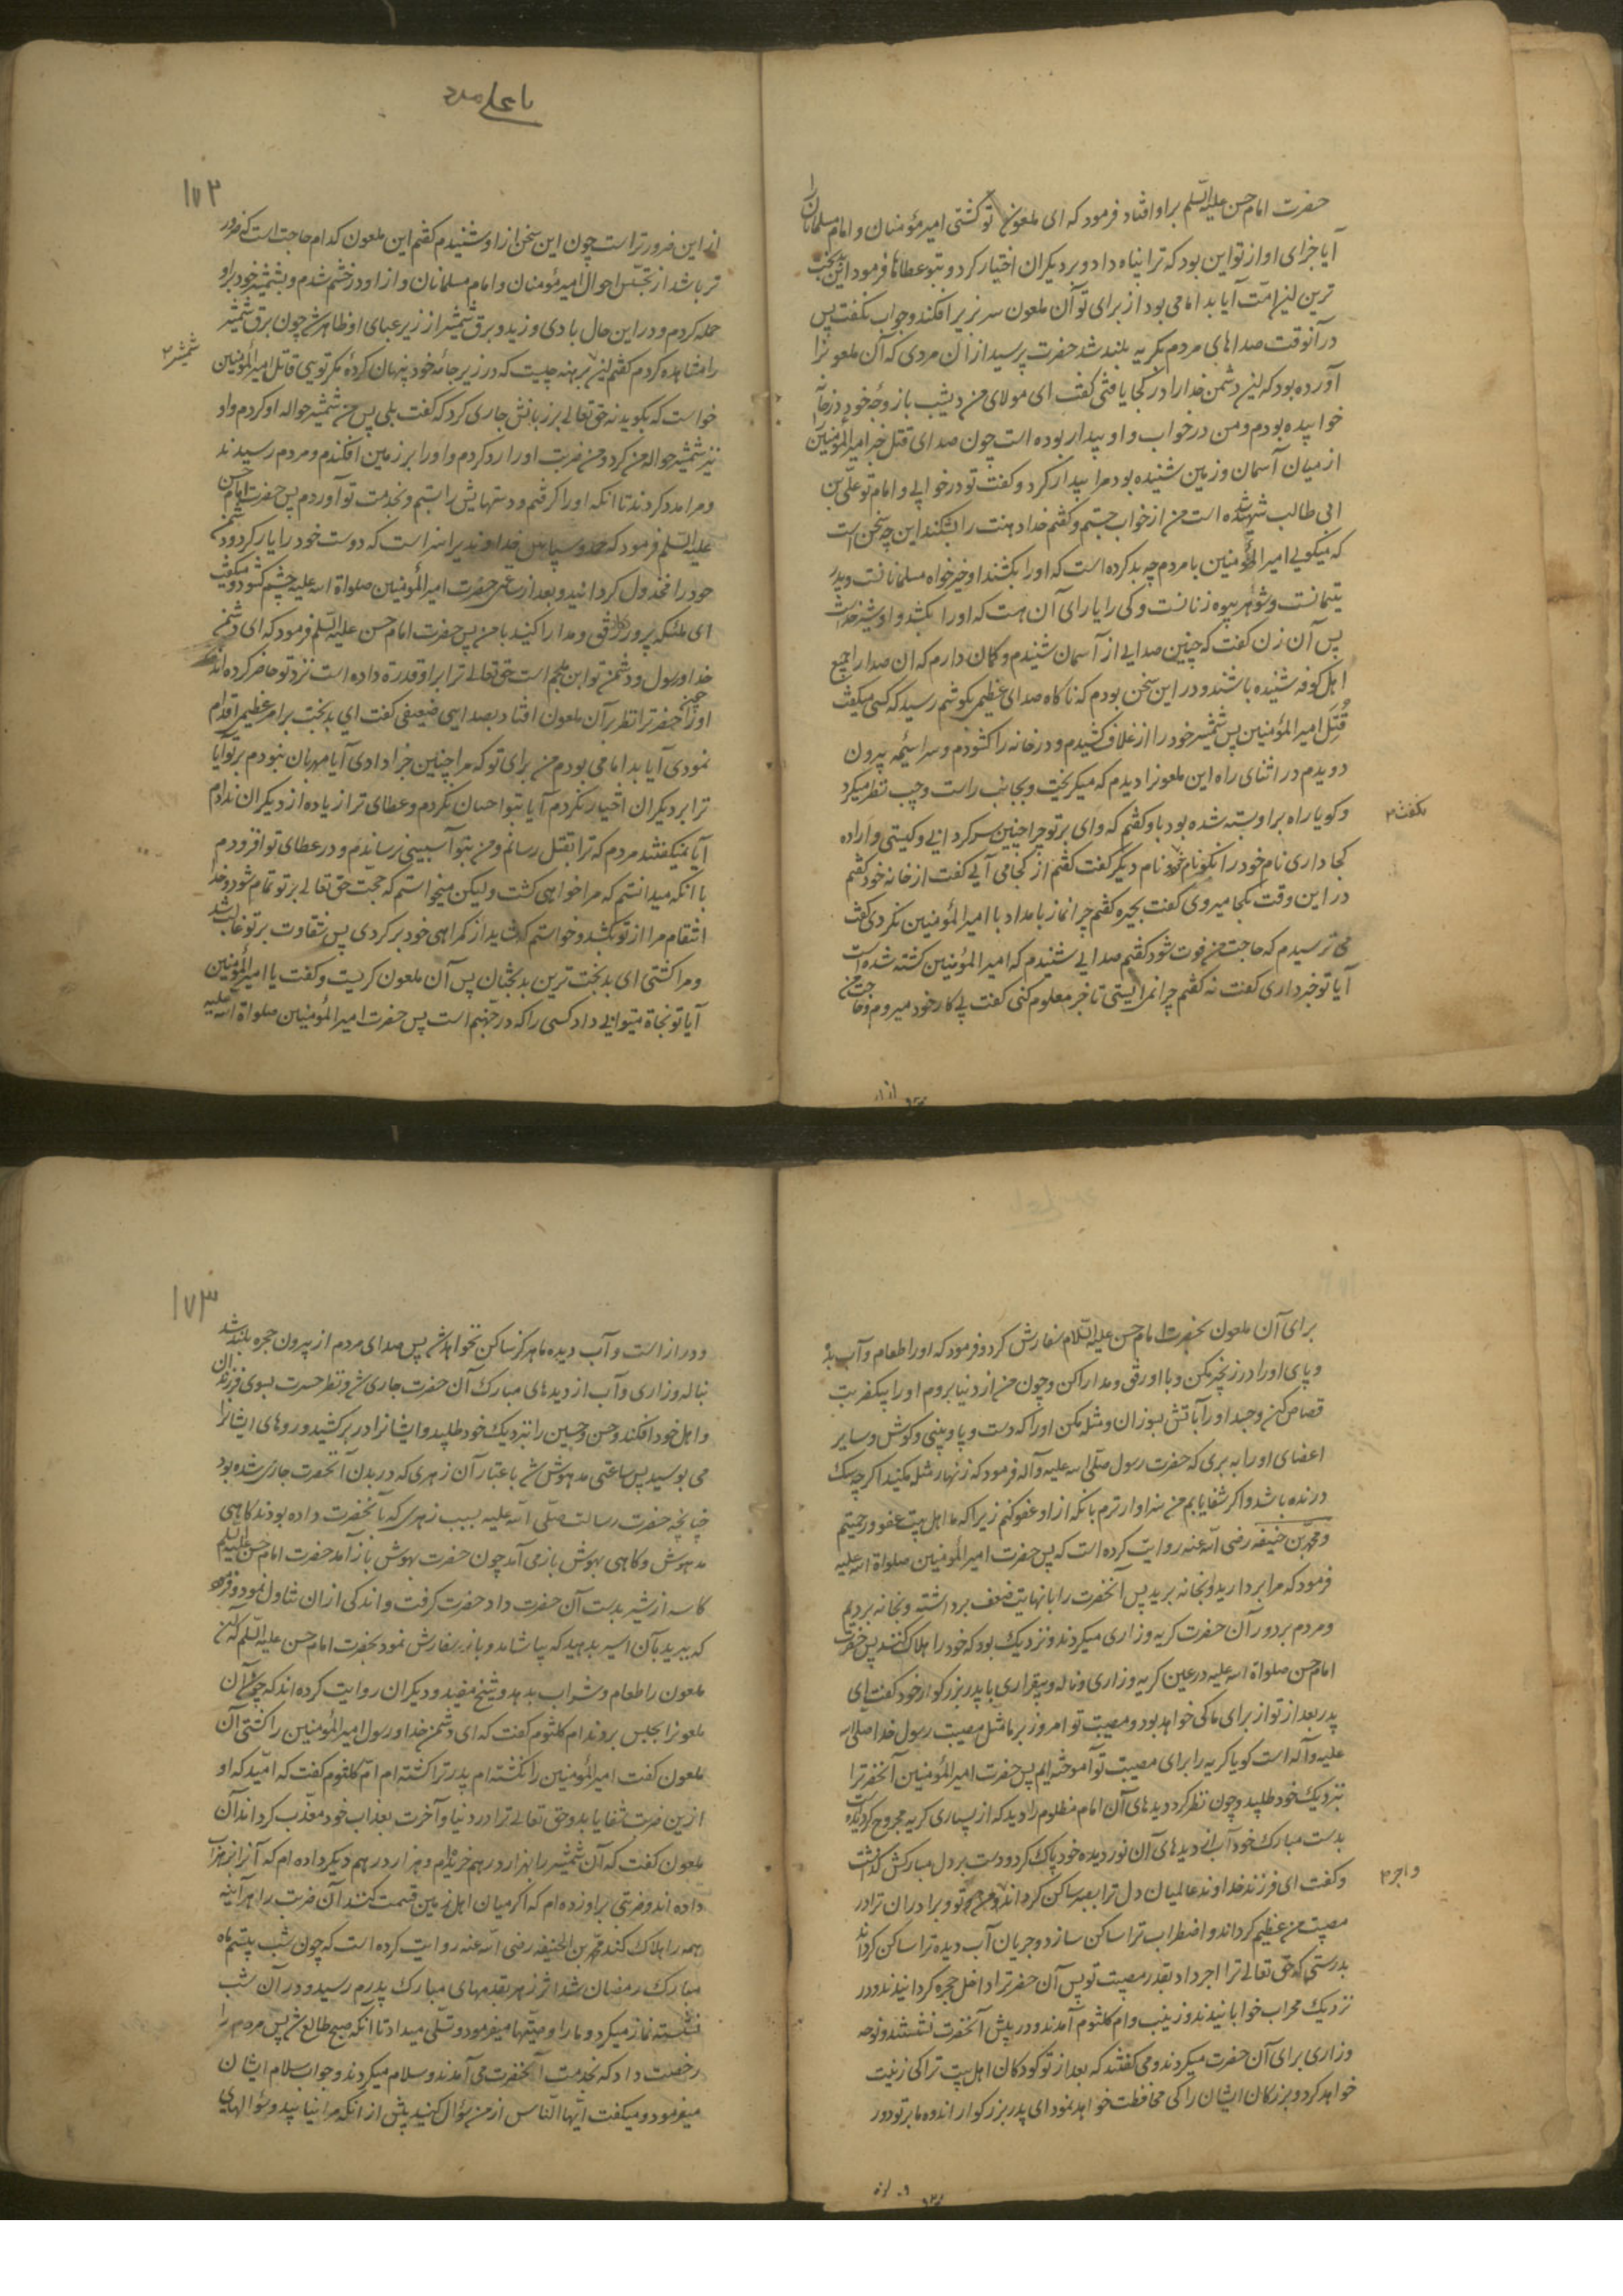 حضرت امام حسن علیه السلم براو افتاد فرمود که ای ملعون تو کشتی امیر مؤمنان و امام مسلمانان را
آیا جزای او از تو این بود که ترا پناه داد و بر دیکران اختیار کرد و بتو عطاها فرمود ای بدبخت
ترین این امت آیا بد امامی بود از برای تو آن ملعون سر بزیر افکند و جواب نکفت پس
درآنوقت صداهای مردم بکریه بلند شد حضرت پرسید از آن مردی که آن ملعونرا
آورده بود که این دشمن خدا را در کجا یافتی کفت ای مولای من دیشب با زوجهٔ خود در خانه
خوابیده بودم و من در خواب و او بیدار بوده است چون صدای قتل خبر امیر المؤمنین
از میان آسمان و زمین شنیده بود مرا بیدار کرد و کفت تو در خوابی و امام تو علی بن
ابی طالب شهید شده است من از خواب جستم و کفتم خدا دهنت را بشکند این چه سخن است
که میکویی امیر المؤمنین با مردم چه بد کرده است که او را بکشند او خیرخواه مسلمانانست و پدر
یتیمانست و شوهر بیوه زنانست و کی را یارای آن هست که او را بکشد و او شیر خداست
پس آن زن کفت که چنین صدایی از آسمان شنیدم و کمان دارم که ان صدا را جمیع
اهل کوفه شنیده باشند و در این سخن بودم که ناکاه صدای عظیمی بکوشم رسید که کسی میکفت
قُتِلَ امیر المؤمنین پس شمشیر خود را از غلاف کشیدم و در خانه را کشودم و سراسیمه بیرون
دویدم در اثنای راه این ملعونرا دیدم که میکریخت و بجانب راست و چپ نظر میکرد
و کویا راه بر او بسته شده بود با و کفتم که وای بر تو چرا چنین سرکردانی و کیستی و اراده
بکفت ۲
کجا داری نام خود را نکو نام خود نام دیکر کفت کفتم از کجا می آیی کفت از خانه خود کفتم
در این وقت بکجا میروی کفت بحیره کفتم چرا نماز بامداد با امیر المؤمنین نکردی کفت
می ترسیدم که حاجت من فوت شود کفتم صدایی شنیدم که امیر المؤمنین کشته شده است
آیا تو خبر داری کفت نه کفتم چرا نمی ایستی تا خبر معلوم کنی کفت پی کار خود میروم و حاجت من
یا علی مدد
۱۷۲
از این ضرور تر است چون این سخن را از او شنیدم کفتم این ملعون کدام حاجت است که ضرور
تر باشد از تجسّس احوال امیر مؤمنان و امام مسلمانان و از او در خشم شدم و بشمشیر خود براو
حمله کردم و در این حال بادی وزید و برق شمشیر از زیر عبای او ظاهر شد چون برق شمشیر
را مشاهده کردم کفتم این برهنه چیست که در زیر جامهٔ خود پنهان کردهٔ مکر تویی قاتل امیر المؤمنین
شمشیر ۲
خواست که بکوید نه حق تعالی بر زبانش جاری کرد که کفت بلی پس من شمشیر حواله او کردم و او
نیز شمشیر حواله من کرد و من ضربت او را رد کردم و او را بر زمین افکندم و مردم رسیدند
و مرا مدد کردند تا انکه او را کرفتم و دستهایش را بستم و بخدمت تو آوردم پس حضرت امام حسن
علیه السلم فرمود که حمد و سپاس خداوندیرا سزا است که دوست خود را یاری کرد و دشمن
خود را مخذول کردانید و بعد از ساعتی حضرت امیر المؤمنین صلواة الله علیه چشم کشود و میکفت
ای ملئکه پروردکار رفق و مدارا کنید با من پس حضرت امام حسن علیه السلم فرمود که ای دشمن
خدا و رسول و دشمن تو ابن ملجم است حق تعالی ترا بر او قدرة داده است نزد تو حاضر کرده اند
او را چون حضرترا نظر بر آن ملعون افتاد بصدایی ضعیفی کفت ای بدبخت بر امر عظیم اقدام
نمودی آیا بد امامی بودم من برای تو که مرا چنین جزا دادی آیا مهربان نبودم بر تو آیا
ترا بر دیکران اختیار نکردم آیا بتو احسان نکردم و عطای ترا زیاده از دیکران ندادم
آیا نمیکفتند مردم که ترا بقتل رسانم و من بتو آسیبی نرساندم و در عطای تو افزودم
با انکه میدانستم که مرا خواهی کشت و لیکن میخواستم که حجّت حق تعالی بر تو تمام شود و خدا
انتقام مرا از تو بکشد و خواستم که شاید از کمراهی خود برکردی پس شقاوت بر تو غالب شد
و مرا کشتی ای بدبخت ترین بدبختان پس آن ملعون کریست و کفت یا امیر المؤمنین
آیا تو نجاة میتوانی داد کسی را که در جهنم است پس حضرت امیر المؤمنین صلواة الله علیه
برای آن ملعون بحضرت امام حسن علیه السلام سفارش کرد و فرمود که او را طعام و آب بده
و پای او را در زنجیر مکن و با او رفق و مدارا کن و چون من از دنیا بروم او را بیکضربت
قصاص کن و جسد او را بآتش بسوزان و مثله مکن او را که دست و پا و بینی و کوش و سایر
اعضای او را ببری که حضرت رسول صلّی الله علیه وآله فرمود که زنهار مثله مکنید اکرچه سک
درنده باشد و اکر شفا یابم من سزاوارترم بانکه از او عفو کنم زیرا که ما اهل بیت عفو و رحمتیم
و محمد بن حنیفه رضی الله عنه روایت کرده است که پس حضرت امیر المؤمنین صلواة الله علیه
فرمود که مرا بردارید و بخانه برید پس آنحضرت را با نهایت ضعف برداشته و بخانه بردیم
و مردم بر دور آن حضرت کریه و زاری میکردند و نزدیک بود که خود را هلاک کنند پس حضرت
امام حسن صلواة الله علیه در عین کریه و زاری و ناله و بیقراری با پدر بزرکوار خود کفت ای
پدر بعد از تو از برای ما کی خواهد بود و مصیبت تو امروز بر ما مثل مصیبت رسول خدا صلی الله
علیه وآله است کویا کریه را برای مصیبت تو آموخته ایم پس حضرت امیر المؤمنین آنحضرترا
نزدیک خود طلبید و چون نظر کرد دیدهای آن امام مظلوم را دید که از بسیاری کریه مجروح کردیده است
بدست مبارک خود آب از دیدهای آن نور دیده خود پاک کرد و دست بر دل مبارکش کذاشت
و کفت ای فرزند خداوند عالمیان دل ترا بصبر ساکن کرداند و مزد تو و برادران ترا در
و اجر ۲
مصیبت من عظیم کرداند و اضطراب ترا ساکن سازد و جریان آب دیده ترا ساکن کرداند
بدرستی که حق تعالی ترا اجر داد بقدر مصیبت تو پس آن حضرترا داخل حجره کردانیدند و در
نزدیک محراب خوابانیدند و زینب و ام کلثوم آمدند و در پیش آنحضرت نشستند و نوحه
و زاری برای آن حضرت میکردند و می کفتند که بعد از تو کودکان اهل بیت ترا کی تربیت
خواهد کرد و بزرکان ایشان را کی محافظت خواهد نمود ای پدر بزرکوار اندوه ما بر تو دور
۱۷۳
و دراز است و آب دیده ما هرکز ساکن نخواهد شد پس صدای مردم از بیرون حجره بلند شد
بناله و زاری و آب از دیدهای مبارک آن حضرت جاری شد و نظر حسرت بسوی فرزندان
و اهل خود افکند و حسن و حسین را نزدیک خود طلبید و ایشانرا در بر کشید و روهای ایشانرا
می بوسید پس ساعتی مدهوش شد باعتبار آن زهری که در بدن آنحضرت جاری شده بود
چنانچه حضرت رسالت صلّی الله علیه بسبب زهری که بآنحضرت داده بودند کاهی
مدهوش و کاهی بهوش باز می آمد چون حضرت بهوش باز آمد حضرت امام حسن علیه السلم
کاسه از شیر بدست آن حضرت داد حضرت کرفت و اندکی ازان تناول نمود و فرمود
که ببرید بآن اسیر بدهید که بیاشامد و باز سفارش نمود بحضرت امام حسن علیه السلم که این
ملعون را طعام و شراب بدهد و شیخ مفید و دیکران روایت کرده اند که چون آن
ملعونرا بحبس بردند ام کلثوم کفت که ای دشمن خدا و رسول امیر المؤمنین را کشتی آن
ملعون کفت امیر المؤمنین را نکشته ام پدر ترا کشته ام امّ کلثوم کفت که امّید که او
ازین ضربت شفا یابد و حق تعالی ترا در دنیا و آخرت بعذاب خود معذّب کرداند آن
ملعون کفت که آن شمشیر را بهزار درهم خریده ام و هزار درهم دیکر داده ام که آنرا بزهر آب
داده اند و ضربتی براو زده ام که اکر میان اهل زمین قسمت کنند آن ضربت را هرآینه
همه را هلاک کند محمد بن الحنیفه رضی الله عنه روایت کرده است که چون شب بیستم ماه
مبارک رمضان شد اثر زهر بقدمهای مبارک پدرم رسید و در آن شب
نشسته نماز میکرد و ما را وصیّتها میفرمود و تسلّی میداد تا انکه صبح طالع شد پس مردم را
رخصت داد که بخدمت آنحضرت می آمدند و سلام میکردند و جواب سلام ایشان
میفرمود و میکفت ایّها النّاس از من سؤال کنید پیش از انکه مرا نیابید و سؤالهای